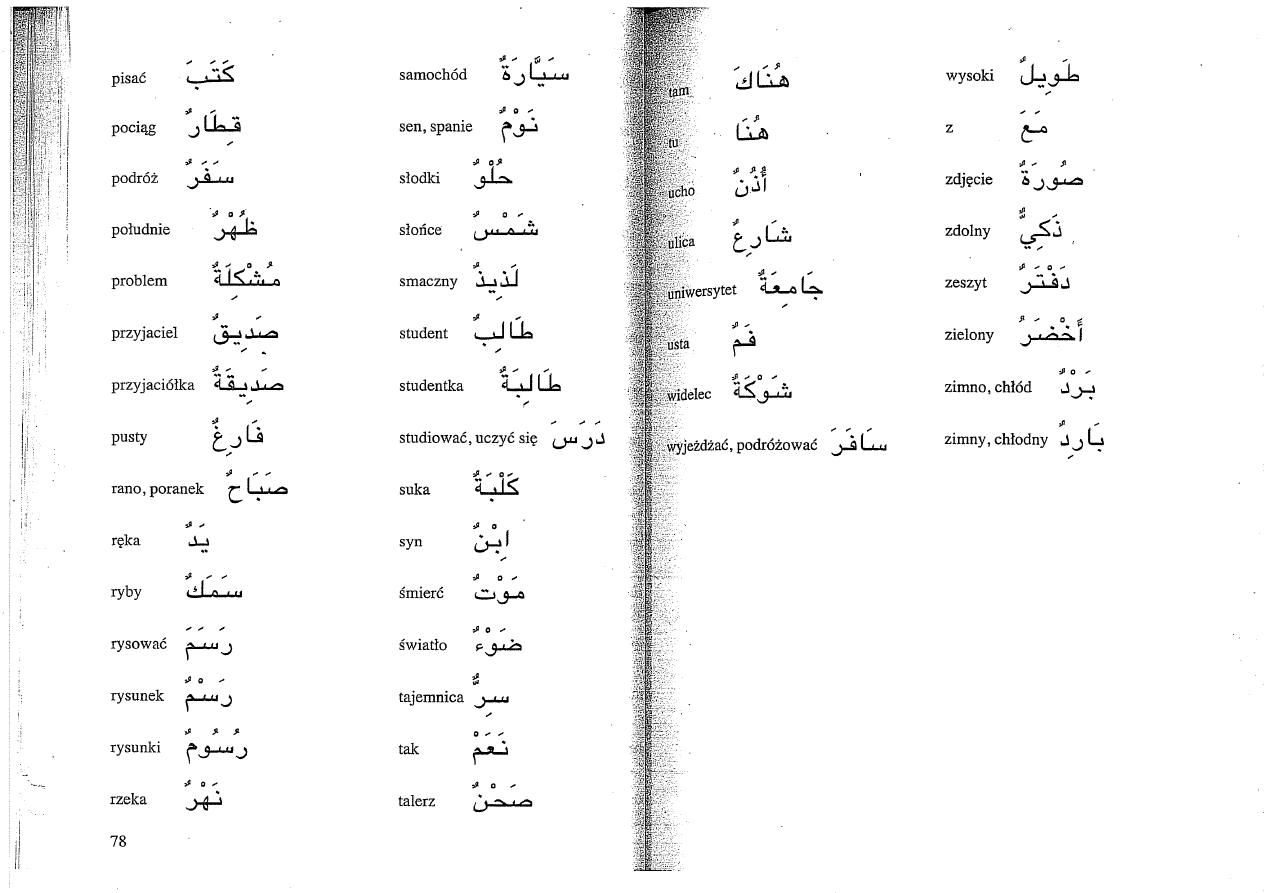 pisać كَتَبَ
pociąg قِطَارٌ
podróż سَفَرٌ
południe ظُهْرٌ
problem مُشْكِلَةٌ
przyjaciel صَدِيقٌ
przyjaciółka صَدِيقَةٌ
pusty فَارِغٌ
rano, poranek صَبَاحٌ
ręka يَدٌ
ryby سَمَكٌ
rysować رَسَمَ
rysunek رَسْمٌ
rysunki رُسُومٌ
rzeka نَهْرٌ
78
samochód سَيَّارَةٌ
sen, spanie نَوْمٌ
słodki حُلْوٌ
słońce شَمْسٌ
smaczny لَذِيذٌ
student طَالِبٌ
studentka طَالِبَةٌ
studiować, uczyć się دَرَسَ
suka كَلْبَةٌ
syn ابْنٌ
śmierć مَوْتٌ
światło ضَوْءٌ
tajemnica سِرٌّ
tak نَعَمْ
talerz صَحْنٌ
tam هُنَاكَ
tu هُنَا
ucho أُذُنٌ
ulica شَارِعٌ
uniwersytet جَامِعَةٌ
usta فَمٌ
widelec شَوْكَةٌ
wyjeżdżać, podróżować سَافَرَ
wysoki طَوِيلٌ
z مَعَ
zdjęcie صُورَةٌ
zdolny ذَكِيٌّ
zeszyt دَفْتَرٌ
zielony أَخْضَرُ
zimno, chłód بَرْدٌ
zimny, chłodny بَارِدٌ